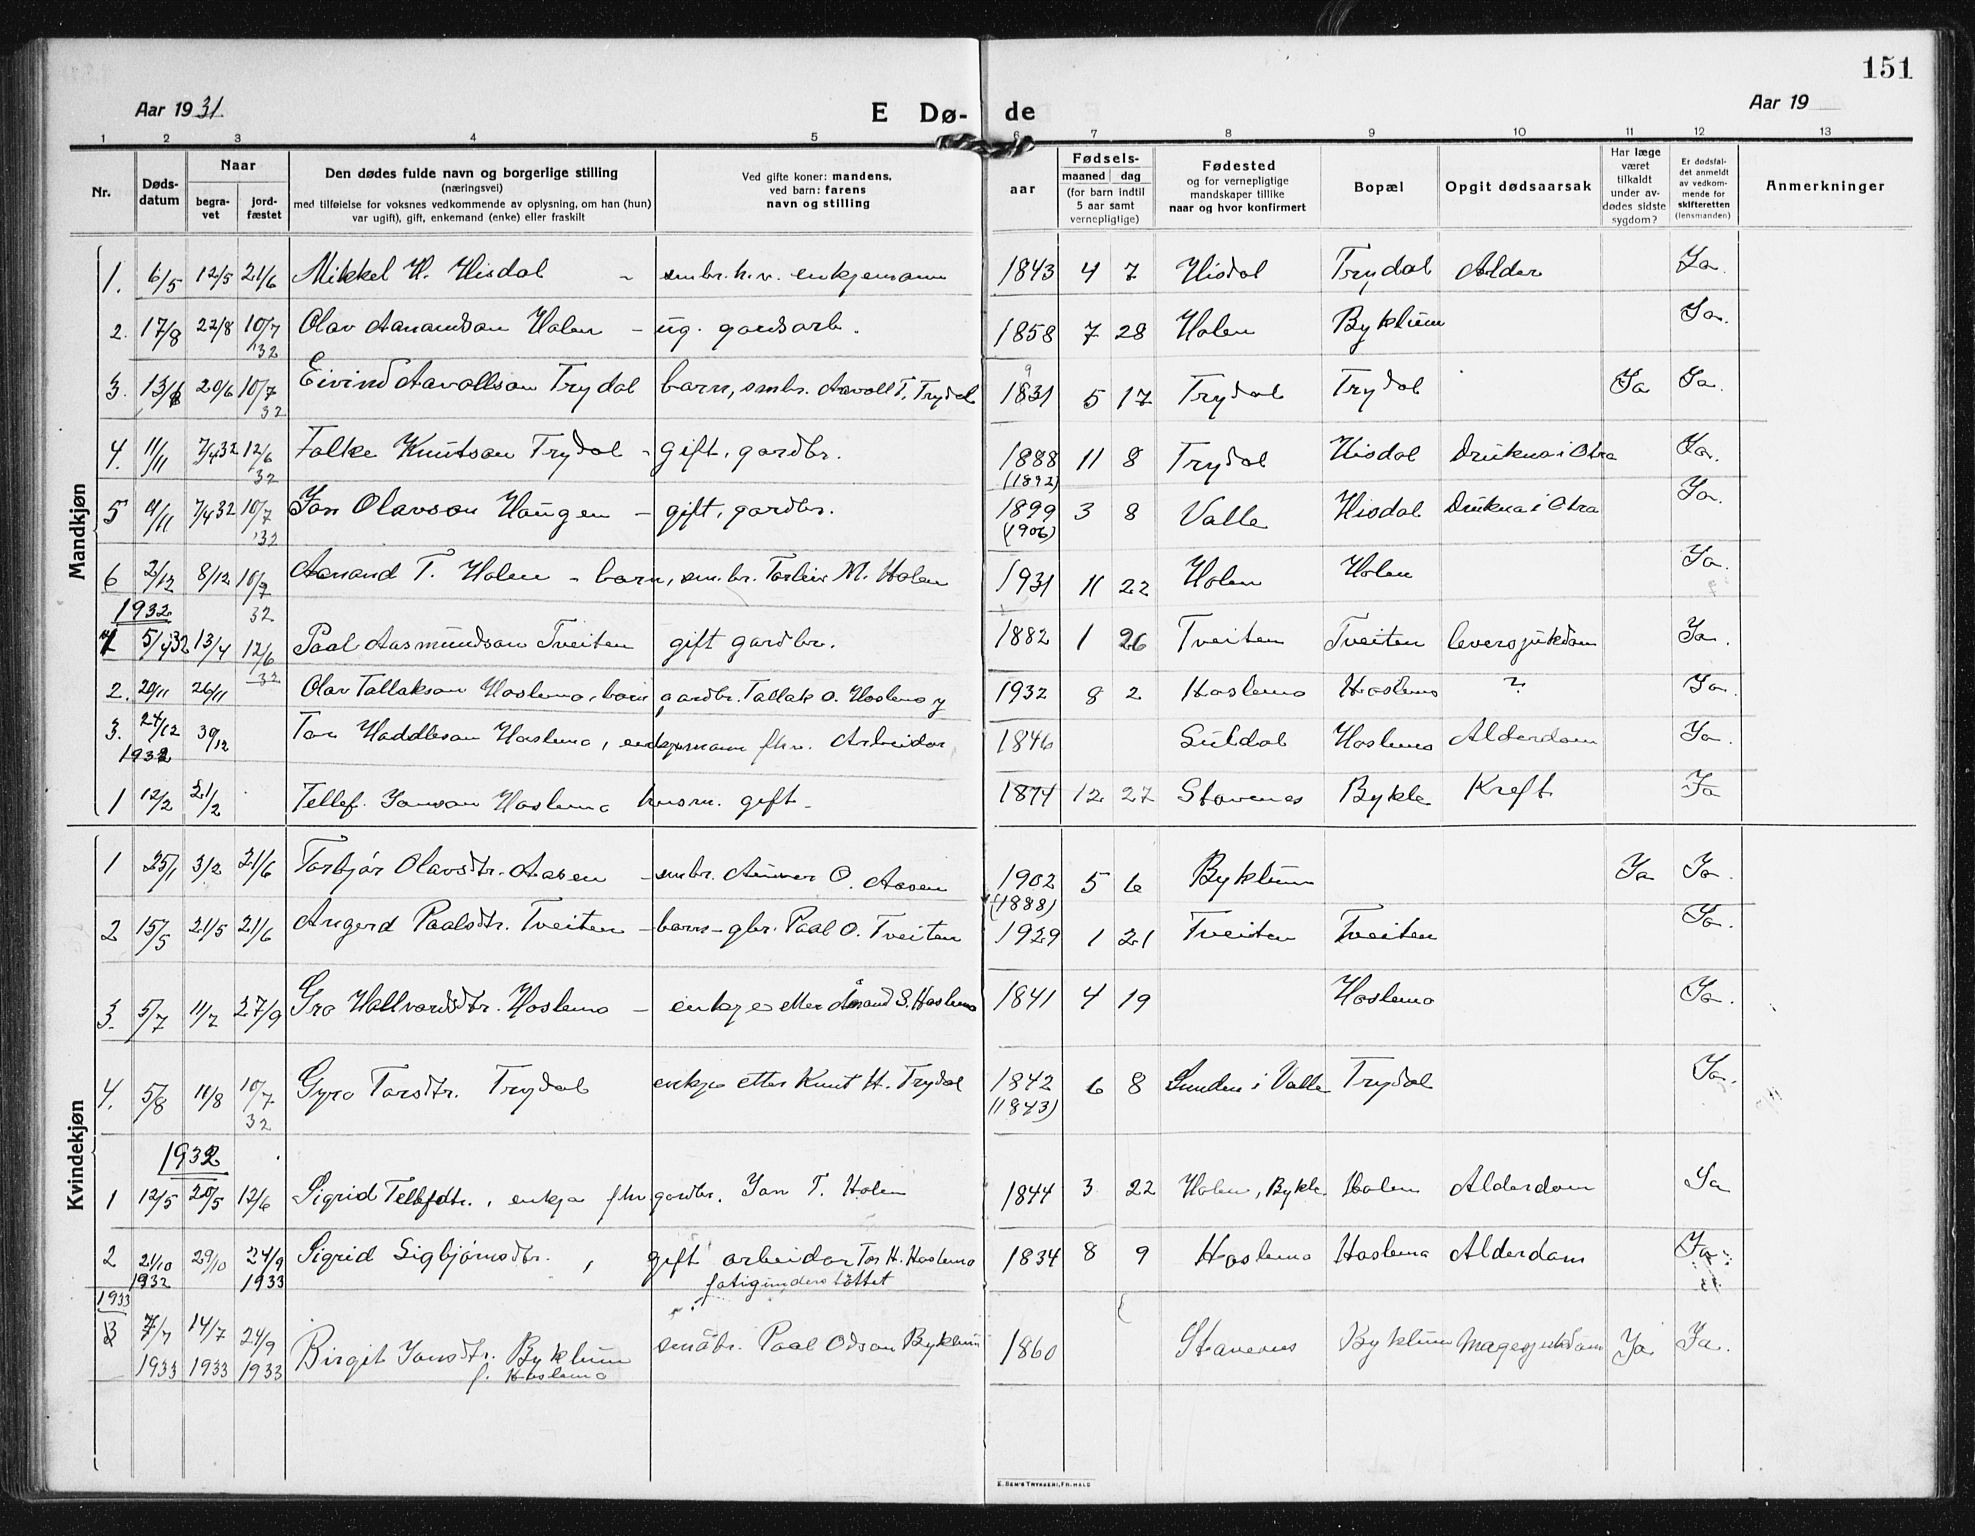 151
Aar 1931 E Dø- de Aar 19
1 2 3 4 5 6 7 8 9 10 11 12 13
Nr. Døds-datum Naar begra-vet jord-fæstet Den dødes fulde navn og borgerlige stilling (næringsvei) med tilføielse for voksnes vedkommende av oplysning, om han (hun) var ugift), gift, enkemand (enke) eller fraskilt Ved gifte koner: mandens, ved barn: farens navn og stilling aar Fødsels- maaned dag (for barn indtil 5 aar samt vernepligtige) Fødested og for vernepligtige mandskaper tillike naar og hvor konfirmert Bopæl Opgit dødsaarsak Har læge været tilkaldt under av-dødes sidste sygdom? Er dødsfal-det anmeldt av vedkom-mende for skifteretten (lensmanden) Anmerkninger
Mandkjøn
1. 6/5 12/5 21/6 Mikkel H. Hisdal - smbr. h.v. enkjemann 1843 4 7 Hisdal Trydal Alder Ja.
2. 17/8 22/8 10/7 '32 Olav Aanundson Holen - ug. gardsarb. 1858 7 28 Holen Byklum Ja.
3. 13/6 20/6 10/7 32 Eivind Aavollson Trydal barn, smbr. Aavoll T. Trydal 1931 5 17 Trydal Trydal Ja Ja.
4. 11/11 7/4 32 12/6 32 Falke Knutson Trydal - gift, gardbr. 1888 (1892) 11 8 Trydal Hisdal Drukna i Otra Ja.
5 9/11 7/4 32 10/7 '32 Jon Olavson Haugen - gift, gardbr. 1899 (1906) 3 8 Valle Hisdal Drukna i Otra Ja.
6 2/12 8/12 10/7 32 Aanund T. Holen - barn, sm.br. Torleiv M. Holen 1931 11 22 Holen Holen Ja.
1932
1 5/4 32 13/4 12/6 32 Paal Aasmundson Tveiten gift gardbr. 1882 1 26 Tveiten Tveiten leversjukdom Ja.
2. 20/11 26/11 Olav Tallakson Hoslemo, barn gardbr. Tallak O. Hoslemo 1932 8 2 Hoslemo Hoslemo ? Ja.
3. 24/12 30/12 Tor Haddleson Hoslemo, enkjemann fhv. Arbeidar 1846 Suldal Hoslemo Alderdom Ja.
1933
1 12/2 21/2 Tellef. Jonson Hoslemo husm. gift. 1874 12 27 Stavenes Bykle Kreft Ja
Kvindekjøn
1 25/1 3/2 21/6 Torbjør Olavsdtr. Aasen - smbr. Aanon O. Aasen 1902 (1888) 5 6 Byklum Ja Ja.
2 15/5 21/5 21/6 Angerd Paalsdtr. Tveiten - barn - gbr. Paal O. Tveiten 1929 1 21 Tveiten Tveiten Ja.
3. 5/7 11/7 27/9 Gro Hallvardsdtr. Hoslemo - enkje etter Ånund S. Hoslemo 1841 4 19 Hoslemo Ja.
4. 5/8 11/8 10/7 32 Gyro Torsdtr. Trydal enkje etter Knut H. Trydal 1842 (1843) 6 8 Sunden i Valle Trydal Ja.
1932
1 12/5 20/5 12/6 Sigrid Tellefdtr., enkja fhv gardbr. Jon T. Holen 1844 3 22 Holen, Bykle Holen Alderdom Ja
2 21/10 1932 29/10 24/9 1933 Sigrid Sigbjørnsdtr., gift arbeidar Tor H. Hoslemo fatigunderstøttet 1834 8 9 Hoslemo Hoslemo Alderdom Ja.
1933
3 7/7 1933 14/7 1933 24/9 1933 Birgit Jonsdtr. Byklum f. Hoslemo småbr. Paal Odson Byklum 1860 Stavenes Byklum Magesjukdom Ja Ja.
E. SEM'S TRYKKERI, FR.HALD